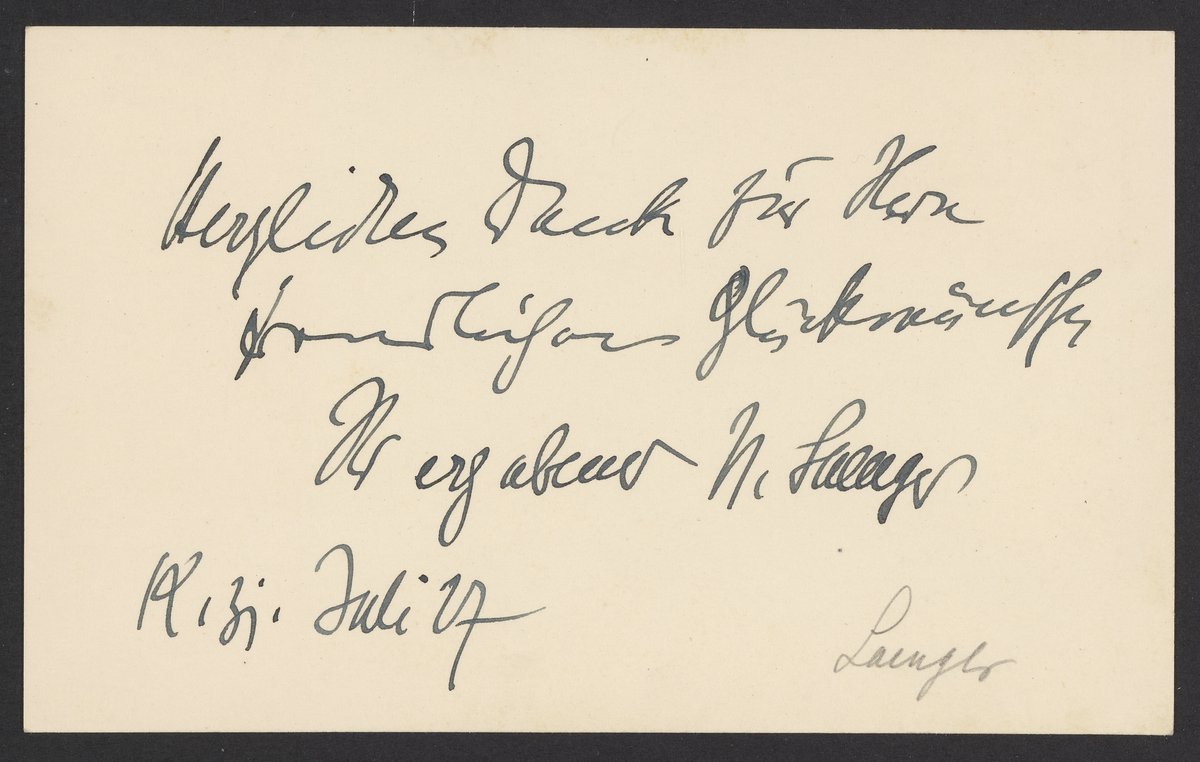 Herzlichen Dank für Ihren
freundlichen Glückwünsche
Ihr ergebener M. Laeuger
K. Juli 27
Laeuger